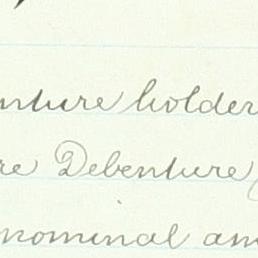 nture holder
re Debenture
nominal am